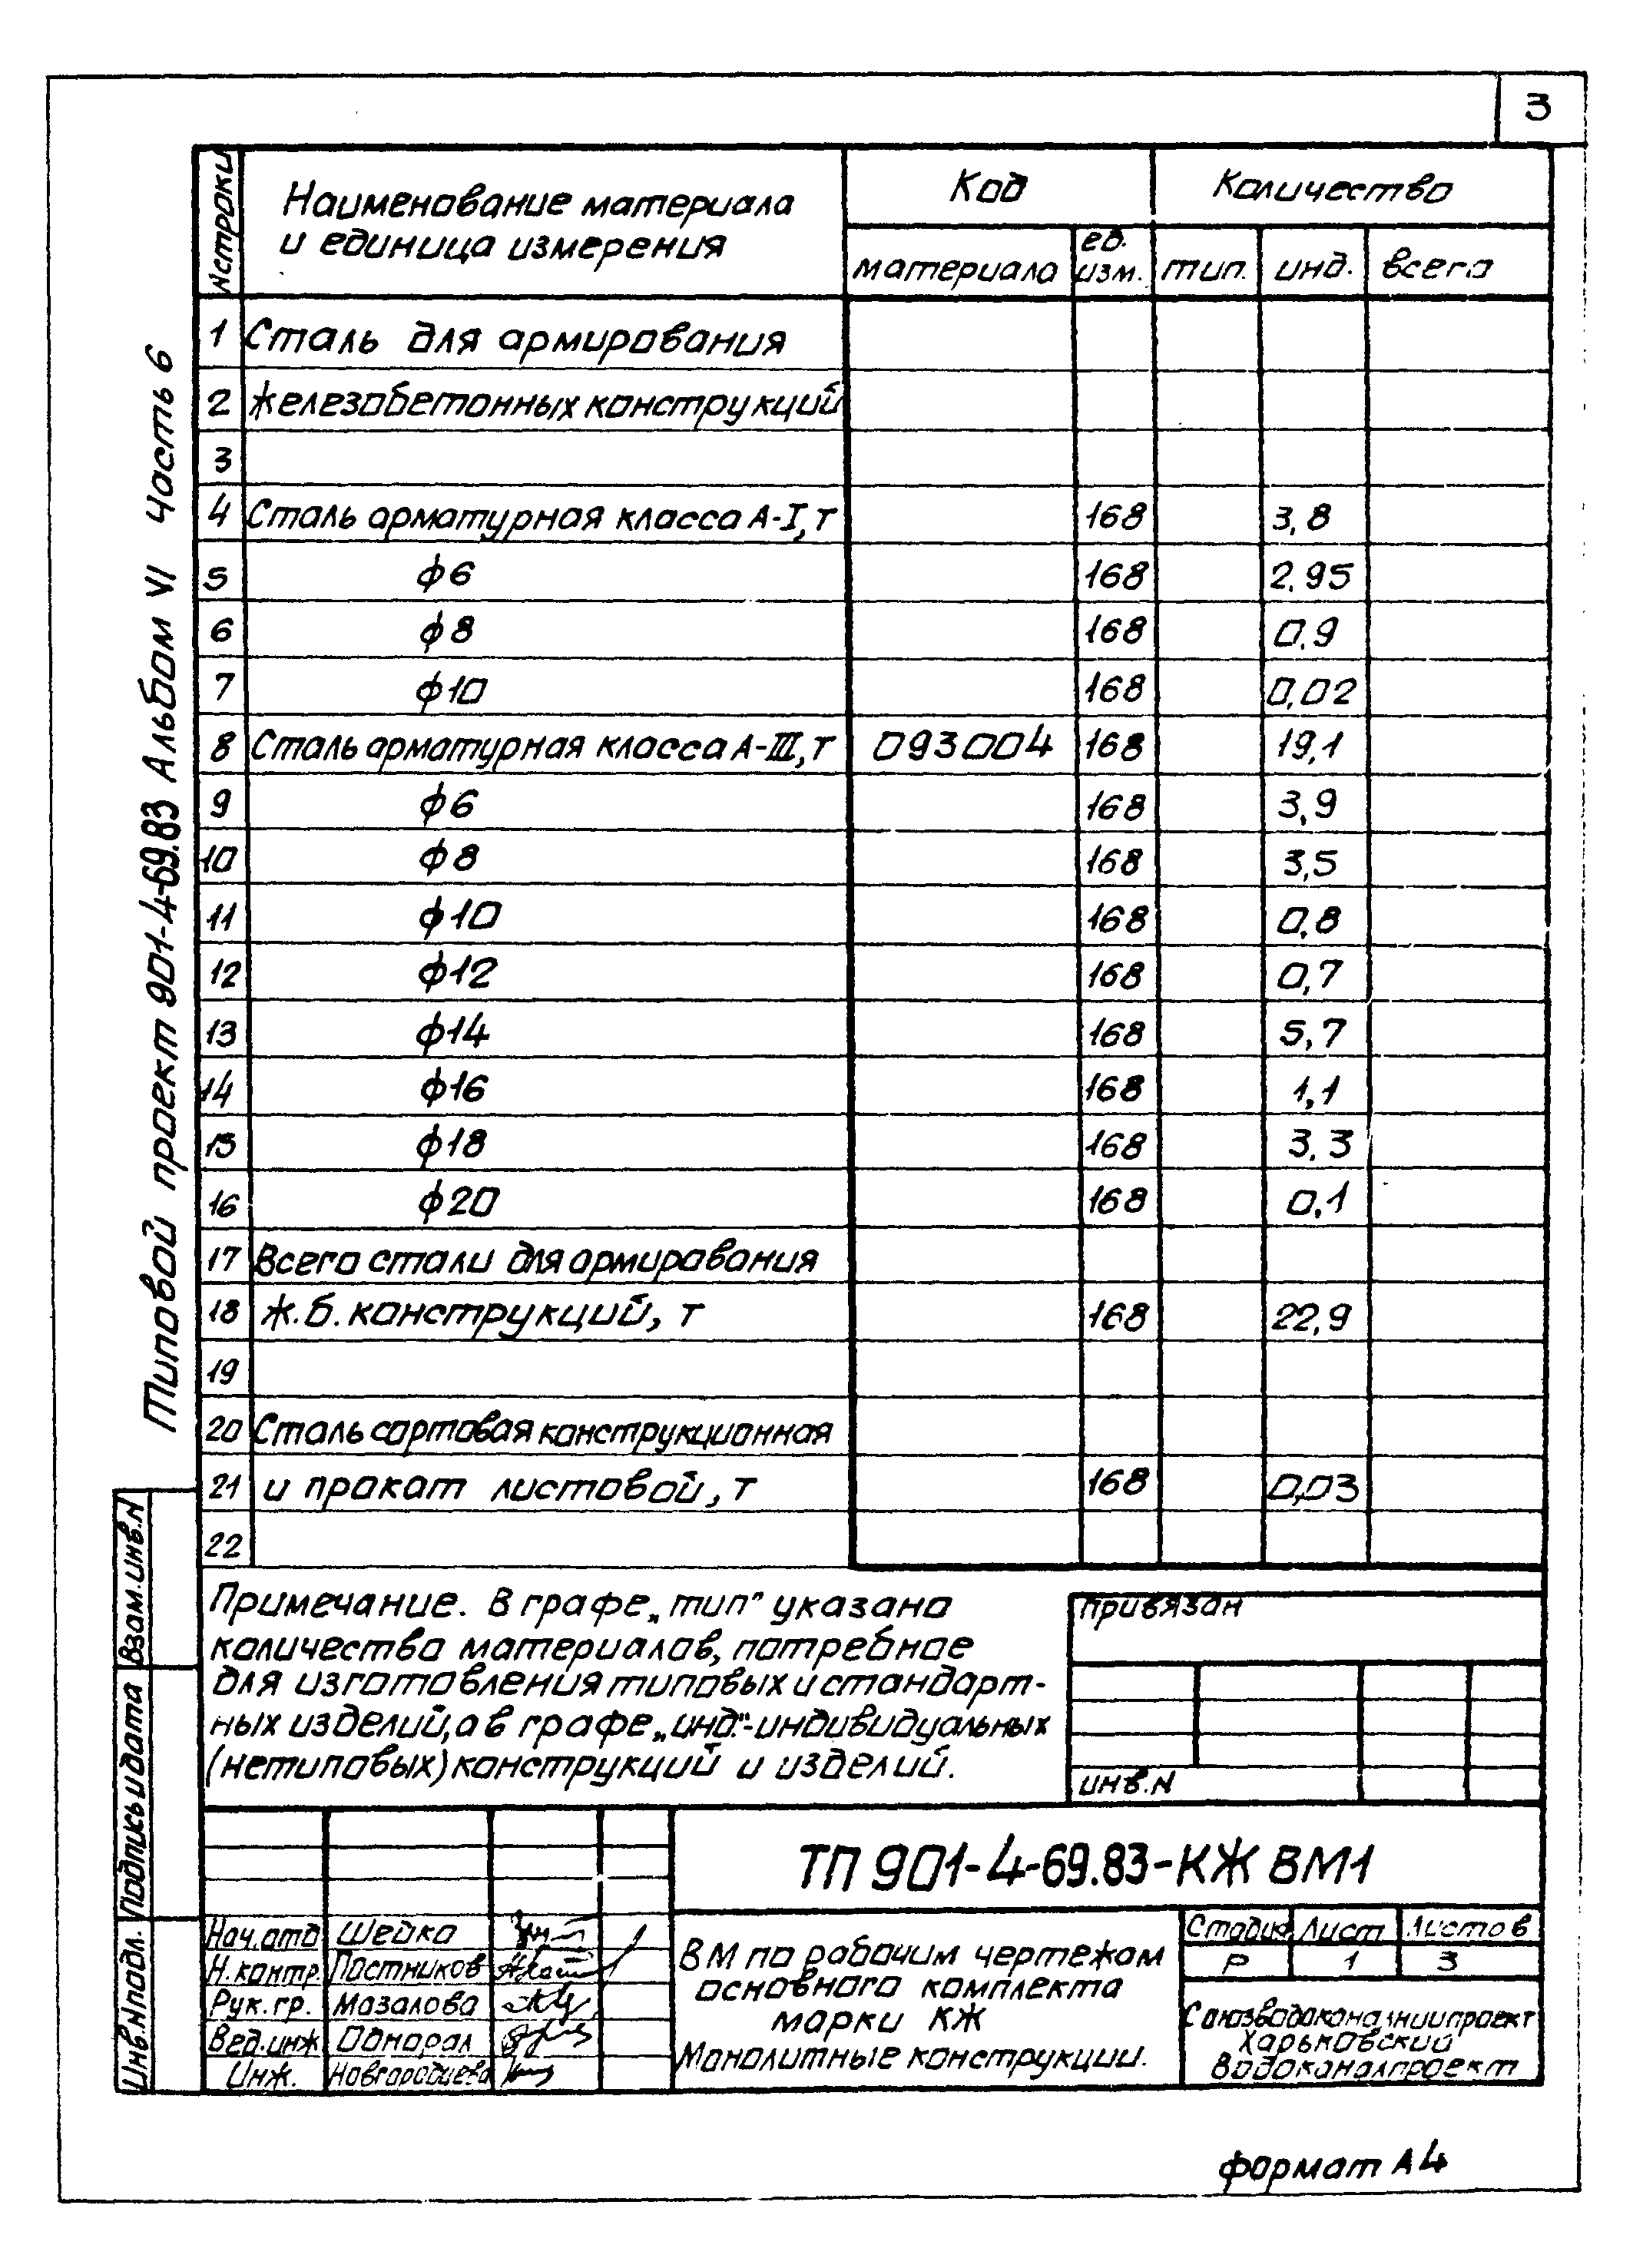 3
Типовой проект 901-4-69.83 Альбом VI Часть 6
№ строки
Наименование материала
и единица измерения
Код
Количество
материала
ед.
изм.
тип.
инд.
всего
1 Сталь для армирования
2 железобетонных конструкций
3
4 Сталь арматурная класса А-I, т 168 3,8
5 ф6 168 2,95
6 ф8 168 0,9
7 ф10 168 0,02
8 Сталь арматурная класса А-III, т 093004 168 19,1
9 ф6 168 3,9
10 ф8 168 3,5
11 ф10 168 0,8
12 ф12 168 0,7
13 ф14 168 5,7
14 ф16 168 1,1
15 ф18 168 3,3
16 ф20 168 0,1
17 Всего стали для армирования
18 ж.б. конструкций, т 168 22,9
19
20 Сталь сортовая конструкционная
21 и прокат листовой, т 168 0,03
22
Примечание. В графе „тип" указано
количество материалов, потребное
для изготовления типовых и стандарт-
ных изделий, а в графе „инд."-индивидуальных
(нетиповых) конструкций и изделий.
привязан
инв.N
Взам.инв.N
Подпись и дата
Инв.N подл.
ТП 901-4-69.83-КЖ ВМ1
Нач.отд Шейко
Н.контр. Постников
Рук.гр. Мазалова
Вед.инж Однорал
Инж. Новгородцева
ВМ по рабочим чертежам
основного комплекта
марки КЖ
Монолитные конструкции.
Стадия Лист Листов
Р 1 3
Союзводоканалниипроект
Харьковский
Водоканалпроект
формат А4